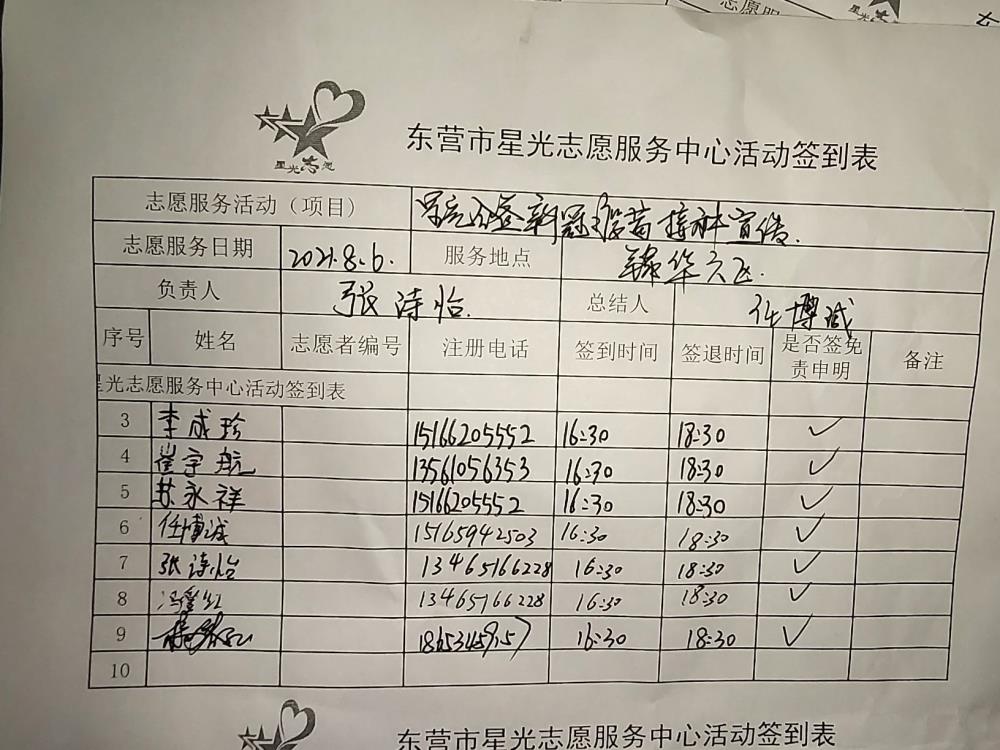 志愿服
星光
星光志愿
东营市星光志愿服务中心活动签到表
志愿服务活动（项目） 新冠疫苗接种宣传.
志愿服务日期 2021.8.6. 服务地点 锦华六区.
负责人 张诗怡. 总结人 任博诚
序号 姓名 志愿者编号 注册电话 签到时间 签退时间 是否签免责申明 备注
星光志愿服务中心活动签到表
3 李成珍 15166205552 16:30 18:30 ✓
4 崔宇航 13561056353 16:30 18:30 ✓
5 苏永祥 15166205552 16:30 18:30 ✓
6 任博诚 15165942503 16:30 18:30 ✓
7 张诗怡 13465166228 16:30 18:30 ✓
8 13465166228 16:30 18:30 ✓
9 16:30 18:30 ✓
10
东营市星光志愿服务中心活动签到表